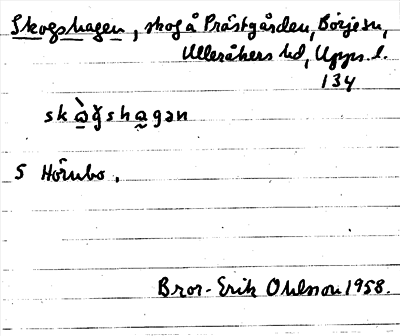 Skogshagen, skog å Prästgården, Börje sn,
Ulleråkers hd, Upps. l.
134
skò̱ǧsha̱gən
S Hörnbo.
Bror-Erik Ohlsson 1958.